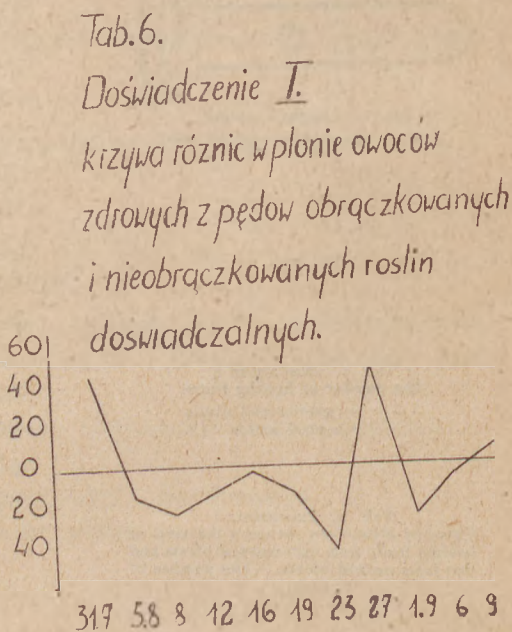 Tab.6.
Doświadczenie I.
krzywa róznic w plonie owoców
zdrowych z pędow obrączkowanych
i nieobrączkowanych roslin
doswiadczalnych.
60
40
20
0
20
40
317 5.8 8 12 16 19 23 27 1.9 6 9